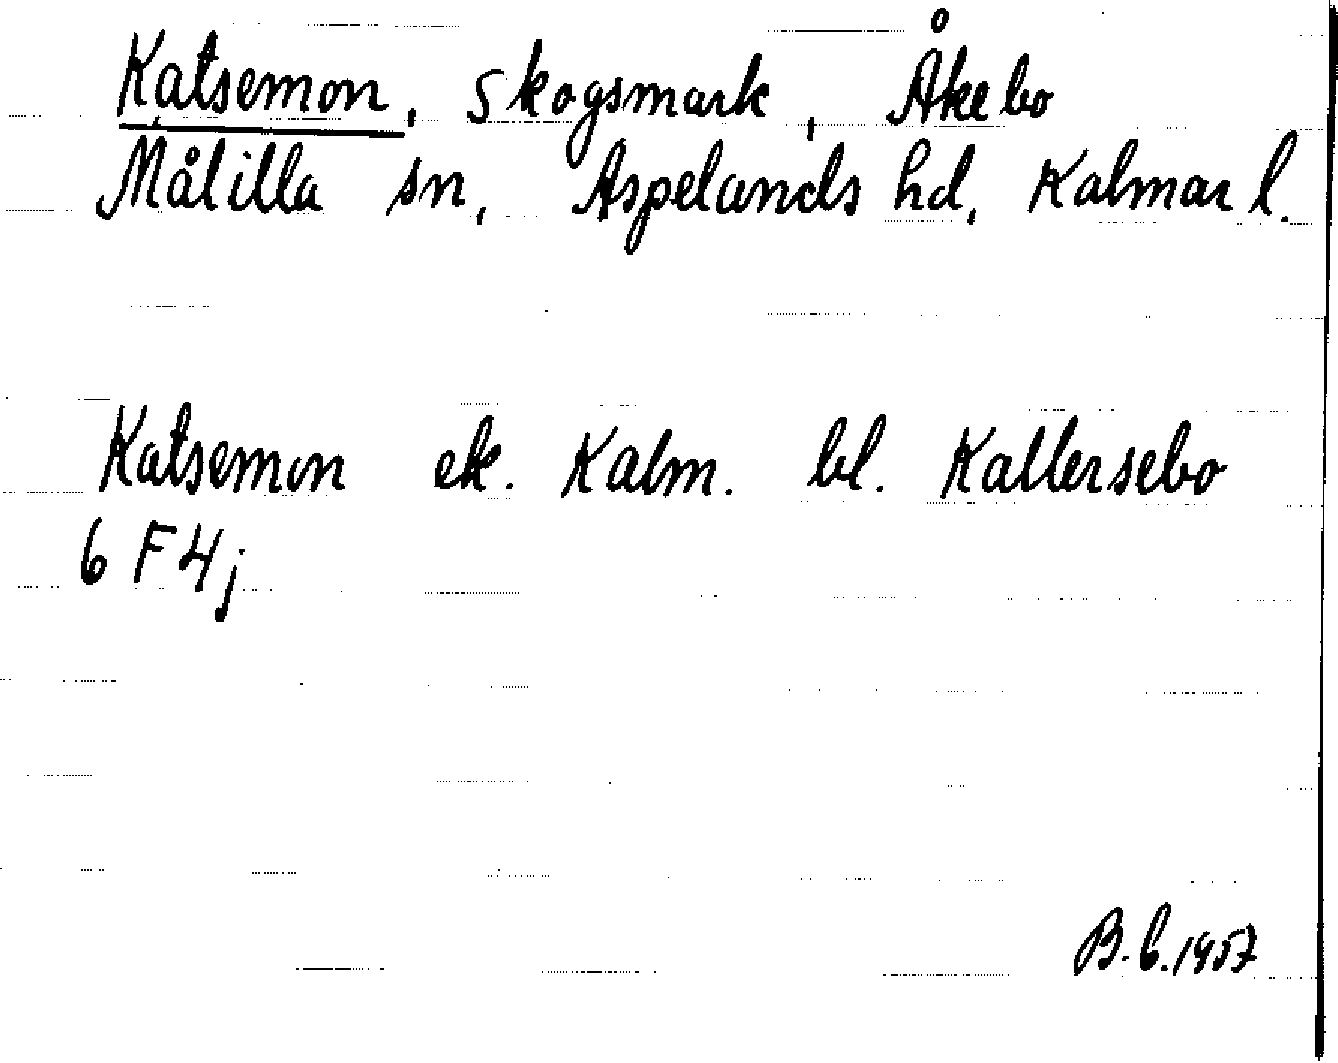 Katsemon, skogsmark, Åkebo
Målilla sn, Aspelands hd, Kalmar l.
Katsemon ek. Kalm. bl. Kallersebo
6 F 4 j
B. C. 1957